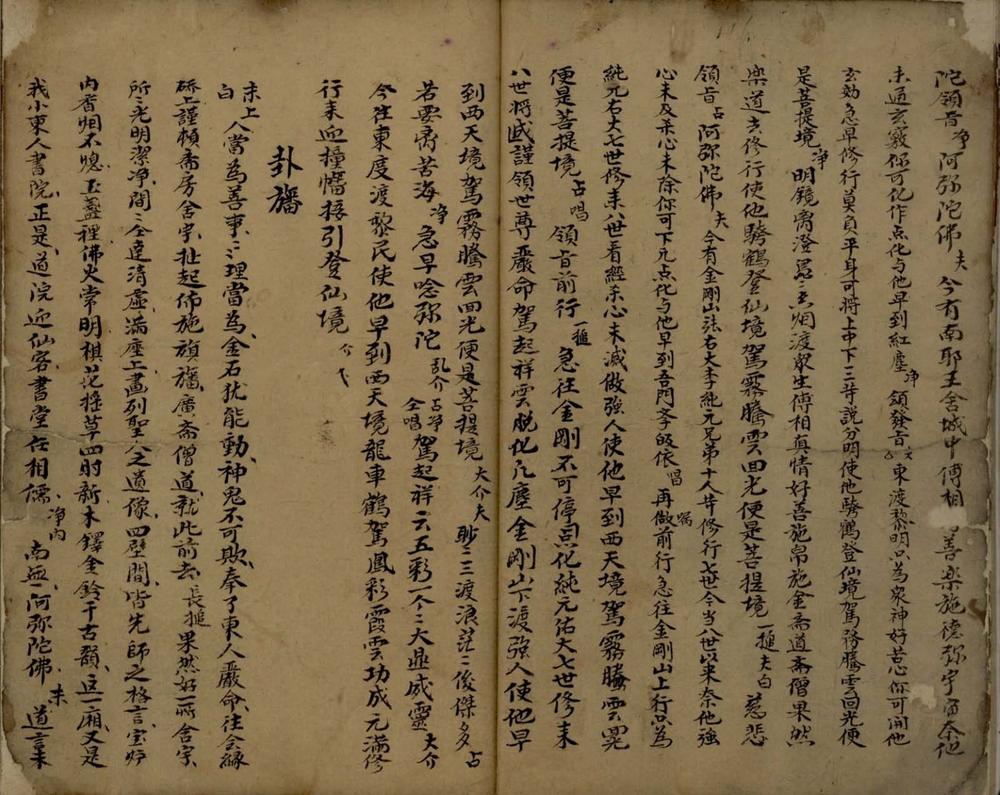 陀領旨净阿弥陀佛夫今有南耶王舍城中傅相善樂施德弥宇宙奈他
未通玄竅你可化作点化与他早到紅塵净領發旨東渡黎明只為眾神好苦心你可開他
玄効急早修行莫負平身可將上中下三等説分明使他騎鶴登仙境駕霧騰雲回光便
是菩提境净明鏡离澄昙三烟渡眾生傅相真情好善施帛施金斋道斋僧果然
樂道去修行使他騎鶴登仙境駕霧騰雲回光便是菩提境一搥夫白慈悲
領旨占阿弥陀佛夫今有金剛山法右大李純元兄弟十人廾修行七世今当八世以来奈他強
心未及未心未除你可下凡点化与他早到吾門李皈依唱再做前行急往金剛山上行只為
純元右大七世修来八世看經杀心未減做強人使他早到西天境駕霧騰雲霓
便是菩提境占唱領旨前行一搥急往金剛不可停点化純元佑大七世修来
八世将威謹領世尊嚴命駕起祥雲脱化凡塵金剛山下渡強人使他早
到西天境駕霧騰雲回光便是菩提境大介夫耖三三渡浪茫二俊傑多占
若要离苦海净急早唸弥陀乱介占净仝唱駕起祥云五彩一个二大显威靈大介
今往東度渡黎民使他早到西天境龍車鶴駕鳳彩霞雲功成元滿修
行来迎撞幡接引登仙境介
卦旛
末上白人當為善事二理當為金石犹能動神鬼不可欺奉了東人嚴命往会緣
硚上謹頼斋房舍宇扯起佈施旗旛廣斋僧道就此前去長搥果然好一所舍宇
所二光明潔净間二仝達清虚滿座上畫列聖公之道像四壁間皆先師之格言宝炉
内香烟不熄玉盏裡佛火常明棋花搖草四时新木鐸金鈴千古韻這一廂又是
我小東人書院正是道院迎仙客書堂在相儒净内南無阿弥陀佛末道言未